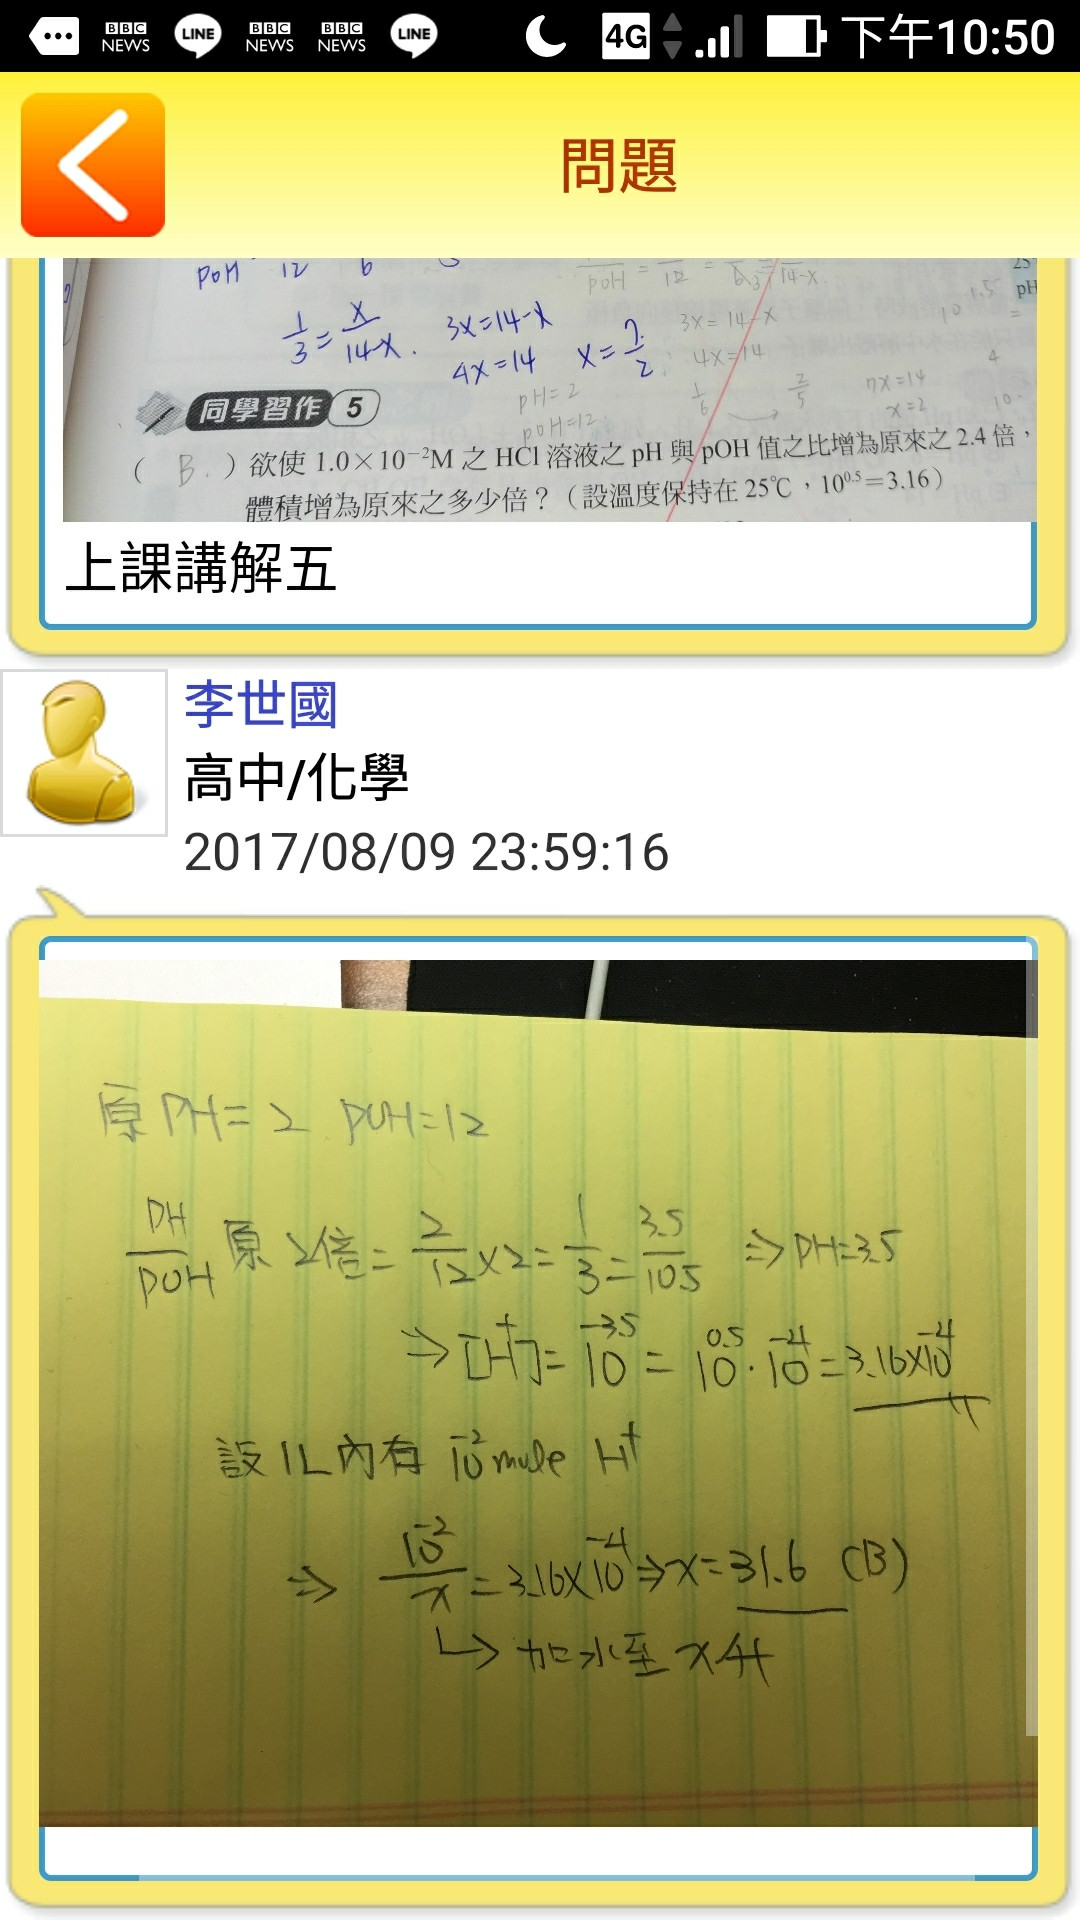 BBC NEWS LINE BBC NEWS BBC NEWS LINE 4G 下午10:50
問題
POH 12 6
POH = 12 = 6 14-x
1/3 = x/14-x. 3x=14-x
4x=14 x=7/2
3x=14-x
4x=14
1/6 2/5 7x=14
x=2
pH=2
pOH=12
同學習作 5
( B. ) 欲使 1.0×10⁻²M 之 HCl 溶液之 pH 與 pOH 值之比增為原來之 2.4 倍,
體積增為原來之多少倍?(設溫度保持在 25℃,10^0.5=3.16)
上課講解五
李世國
高中/化學
2017/08/09 23:59:16
原 PH=2 POH=12
PH/POH 原 2倍 = 2/12 ×2 = 1/3 = 3.5/10.5 ⇒ PH=3.5
⇒ [H⁺] = 10^-3.5 = 10^0.5 · 10^-4 = 3.16×10^-4
設 1L 內有 10^-2 mole H⁺
⇒ 10^-2/x = 3.16×10^-4 ⇒ x=31.6 (B)
↳ 加水至 x升